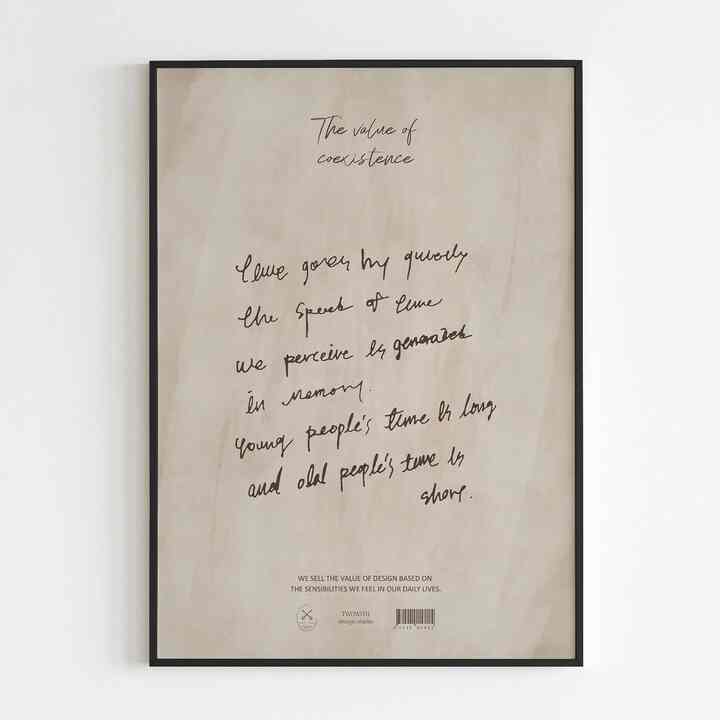 The value of
coexistence
time goes by quickly
the speed of time
we perceive is generated
in memory.
young people's time is long
and old people's time is
short.
WE SELL THE VALUE OF DESIGN BASED ON
THE SENSIBILITIES WE FEEL IN OUR DAILY LIVES.
design studio